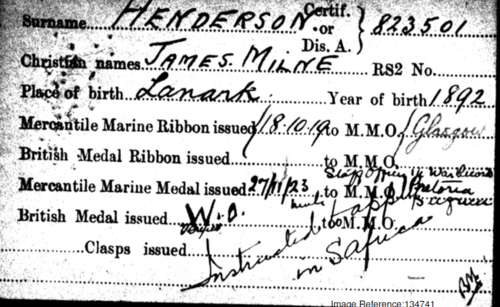 Surname HENDERSON Certif. or Dis. A. } 823501
Christian names JAMES. MILNE RS2 No.
Place of birth Lanark. Year of birth 1892
Mercantile Marine Ribbon issued 18.10.19 to M.M.O. Glasgow
British Medal Ribbon issued to M.M.O.
Mercantile Marine Medal issued 27/11/23 to M.M.O. Pretoria
British Medal issued W.O. to M.M.O. S. Africa
Clasps issued Instructed
in S Africa
Image Reference:134741